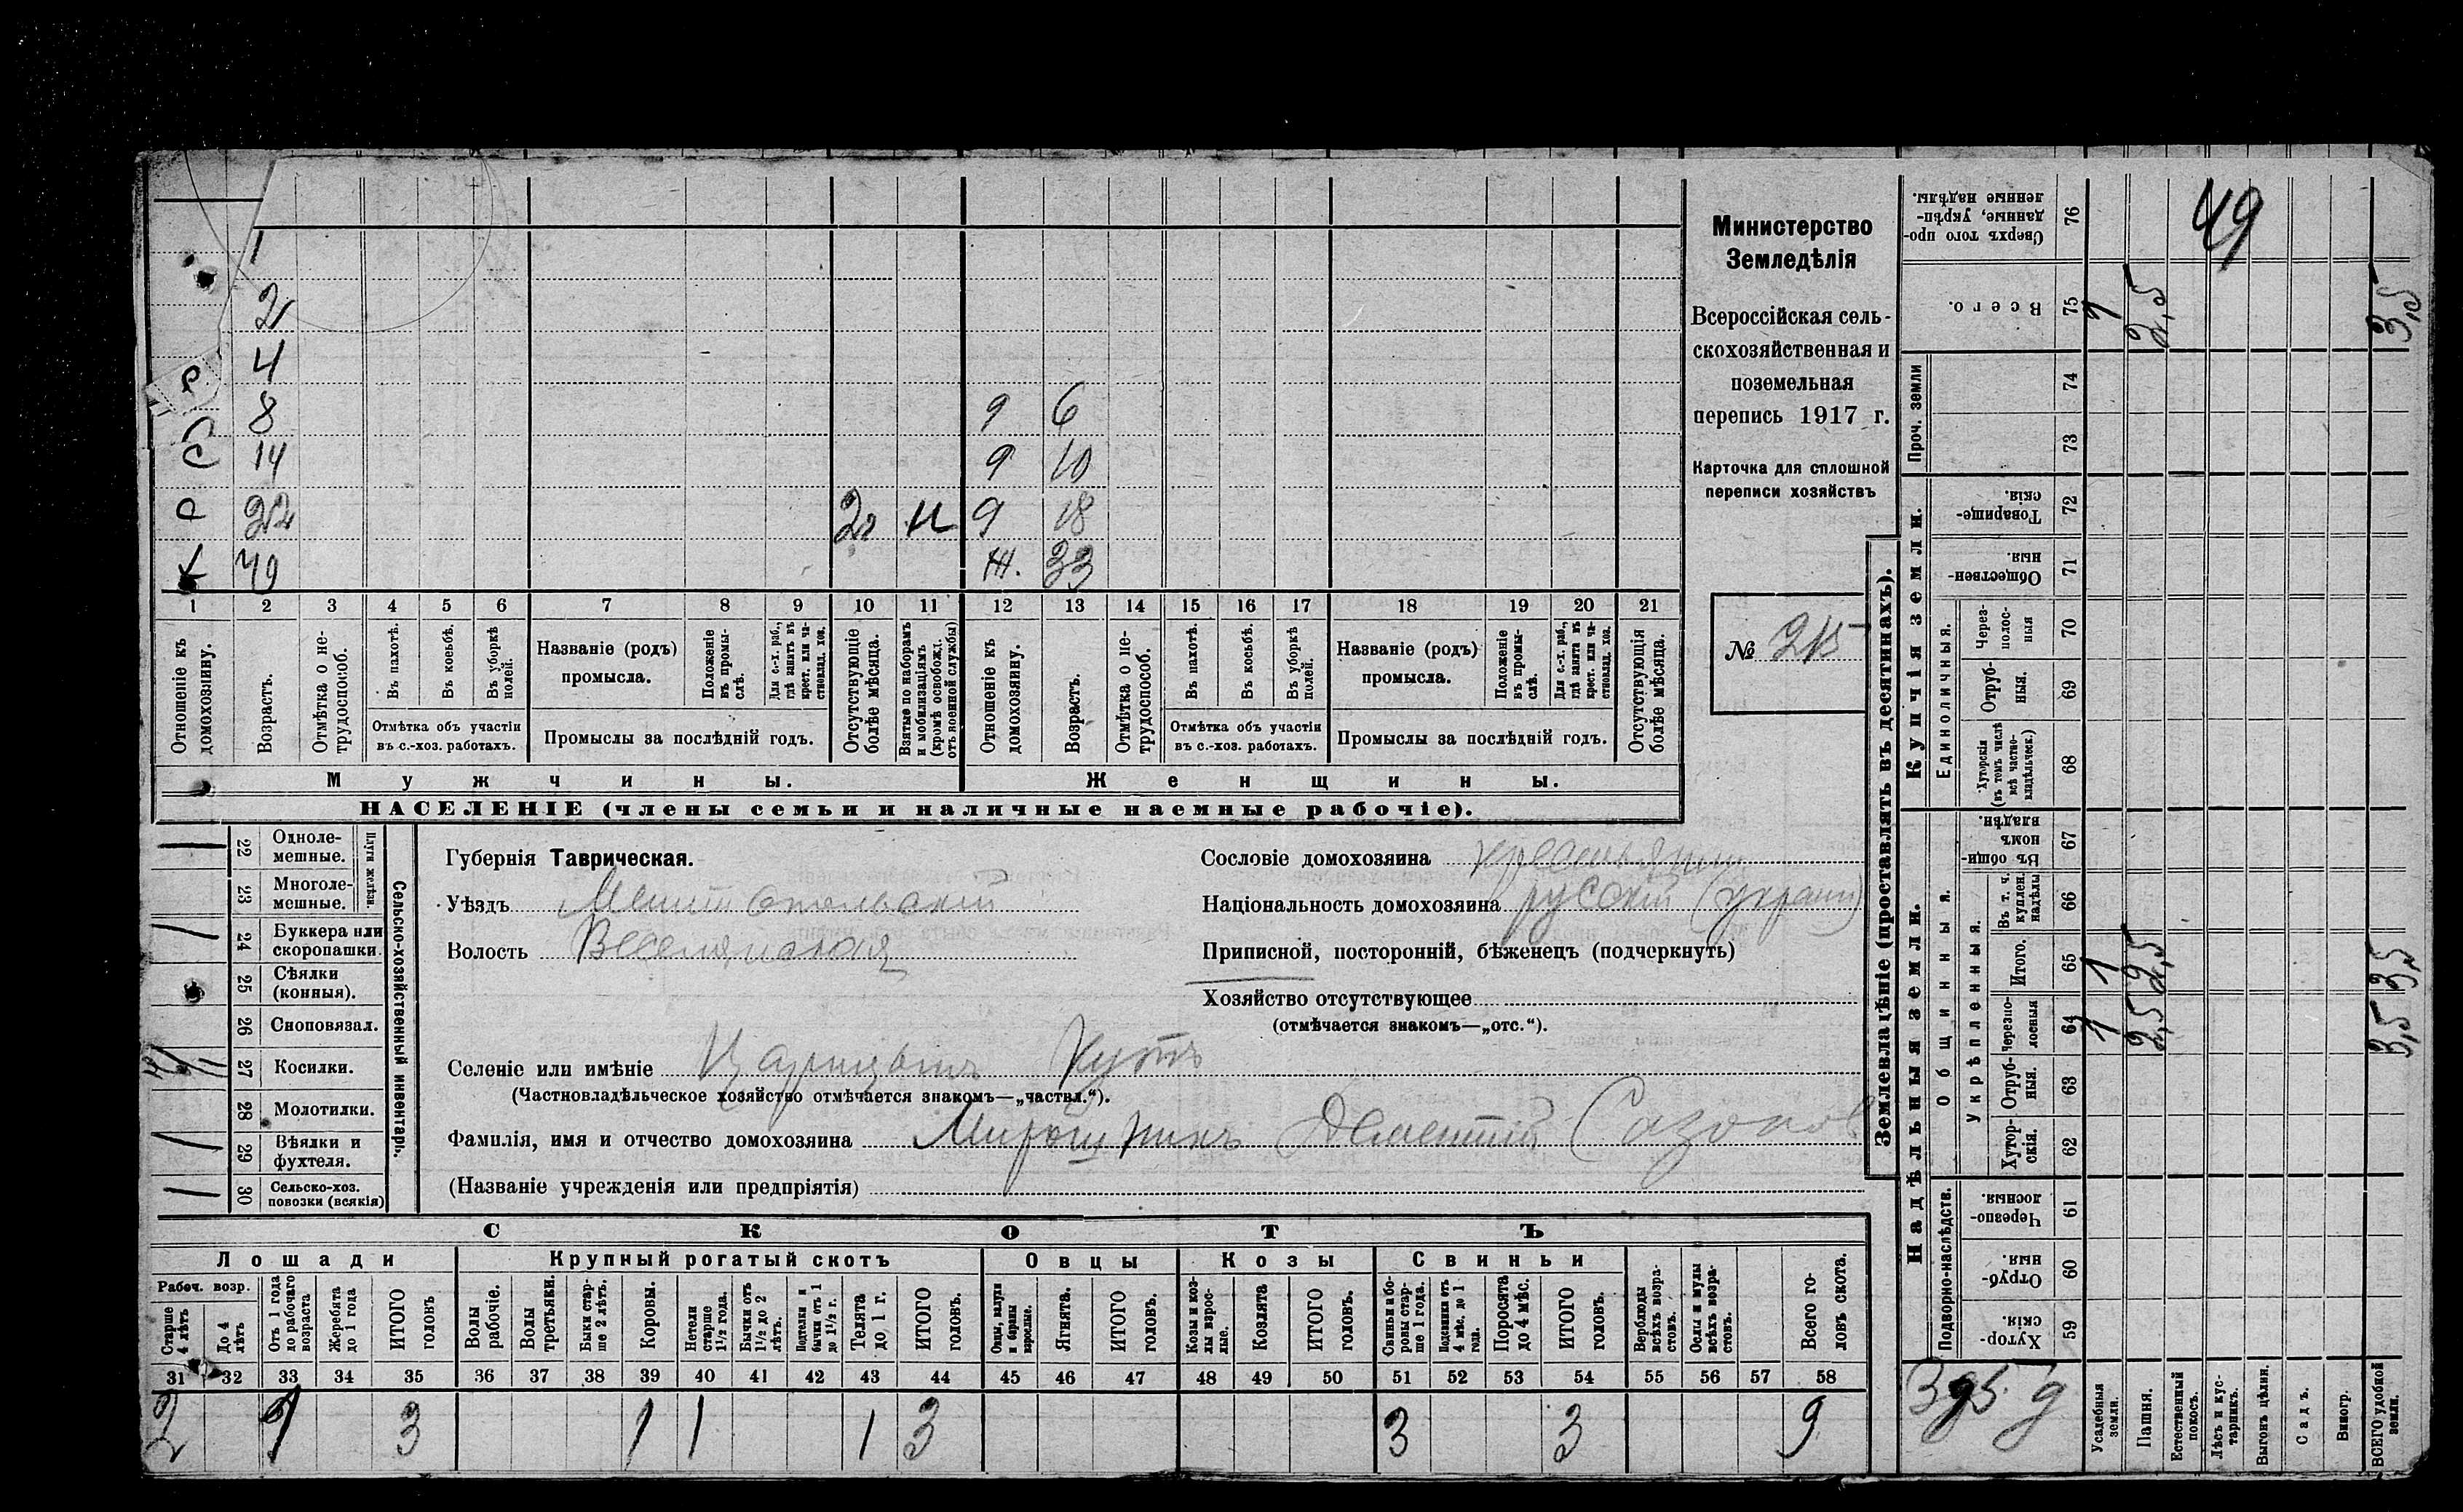 1
2
4
8 9 6
С 14 9 10
С 22 9 18
Х 49 Ж. 33
1 2 3 4 5 6 7 8 9 10 11 12 13 14 15 16 17 18 19 20 21
Отношеніе къ домохозяину.
Возрастъ.
Отмѣтка о не-трудоспособ.
Въ пахотѣ.
Въ косьбѣ.
Въ уборкѣ полей.
Отмѣтка объ участіи
въ с.-хоз. работахъ.
Названіе (родъ)
промысла.
Положеніе въ промы-слѣ.
Для с.-х. раб., гдѣ занятъ въ крест. или ча-стновлад. хоз.
Промыслы за послѣдній годъ.
Отсутствующіе болѣе мѣсяца.
Взятые по наборамъ и мобилизаціямъ (кромѣ освобожд. отъ военной службы)
Отношеніе къ домохозяину.
Возрастъ.
Отмѣтка о не-трудоспособ.
Въ пахотѣ.
Въ косьбѣ.
Въ уборкѣ полей.
Отмѣтка объ участіи
въ с.-хоз. работахъ.
Названіе (родъ)
промысла.
Положеніе въ промы-слѣ.
Для с.-х. раб., гдѣ занята въ крест. или ча-стновлад. хоз.
Промыслы за послѣдній годъ.
Отсутствующія болѣе мѣсяца.
Мужчины. Женщины.
НАСЕЛЕНІЕ (члены семьи и наличные наемные рабочіе).
Министерство
Земледѣлія
Всероссійская сель-
скохозяйственная и
поземельная
перепись 1917 г.
Карточка для сплошной
переписи хозяйствъ
№ 215
22 Одноле-мешные.
23 Многоле-мешные.
Плуги желѣзн.
24 Буккера или скоропашки.
25 Сѣялки (конныя).
26 Сноповязал.
27 Косилки.
28 Молотилки.
29 Вѣялки и фухтеля.
30 Сельско-хоз. повозки (всякія)
Сельско-хозяйственный инвентарь.
Губернія Таврическая.
Уѣздъ Мелитопольскій
Волость Веселянская
Сословіе домохозяина крестьянин
Національность домохозяина русскій (украин)
Приписной, посторонній, бѣженецъ (подчеркнуть)
Хозяйство отсутствующее
(отмѣчается знакомъ—„отс.“).
Селеніе или имѣніе Царицынъ Кутъ
(Частновладѣльческое хозяйство отмѣчается знакомъ—„частвл.“).
Фамилія, имя и отчество домохозяина Мирошникъ Дементій Сазонов
(Названіе учрежденія или предпріятія)
СКОТЪ
Лошади Крупный рогатый скотъ Овцы Козы Свиньи
Рабоч. возр.
Старше 4 лѣтъ
До 4 лѣтъ
Отъ 1 года до рабочаго возраста
Жеребята до 1 года
ИТОГО головъ
Волы рабочіе.
Волы третьяки.
Быки стар-ше 2 лѣтъ.
Коровы.
Нетели старше 1½ года.
Бычки отъ 1½ до 2 лѣтъ.
Подтелки и бычки отъ 1 до 1½ г.
Телята до 1 г.
ИТОГО головъ.
Овцы, валухи и бараны взрослые.
Ягнята.
ИТОГО головъ.
Козы и коз-лы взрос-лые.
Козлята
ИТОГО головъ.
Свиньи и бо-ровы стар-ше 1 года.
Подсвинки отъ 4 мѣс. до 1 года.
Поросята до 4 мѣс.
ИТОГО головъ.
Верблюды всѣхъ возра-стовъ.
Ослы и мулы всѣхъ возра-стовъ.
Всего го-ловъ скота.
31 32 33 34 35 36 37 38 39 40 41 42 43 44 45 46 47 48 49 50 51 52 53 54 55 56 57 58
2 1 3 1 1 1 3 3 3 9
Землевладѣніе (проставлять въ десятинахъ).
Сверхъ того про-данные, укрѣп-ленные надѣлы. 76
49
Всего. 75 1 2,5 3,5
Проч. земли 74 73
Купчія земли.
Товарище-скія. 72
Обществен-ныя. 71
Единоличныя.
Через-полос-ныя 70
Отруб-ныя. 69
Хуторскія (въ томъ числѣ всѣ частно-владѣльческ.) 68
Надѣльныя земли.
Общинныя.
Въ общи-номъ владѣн. 67
Укрѣпленныя.
Въ т. ч. куплен. надѣлы 66
Итого. 65 1 2,5 3,5
Черезпо-лосныя 64 1 2,5 3,5
Отруб-ныя. 63
Хутор-скія. 62
Подворно-наслѣдств.
Черезпо-лосныя. 61
Отруб-ныя. 60
Хутор-скія. 59
Усадебныя земли.
Пашня.
Естественный покосъ.
Лѣсъ и кус-тарникъ.
Выгонъ цѣлин.
Садъ.
Виногр.
ВСЕГО удобной земли.